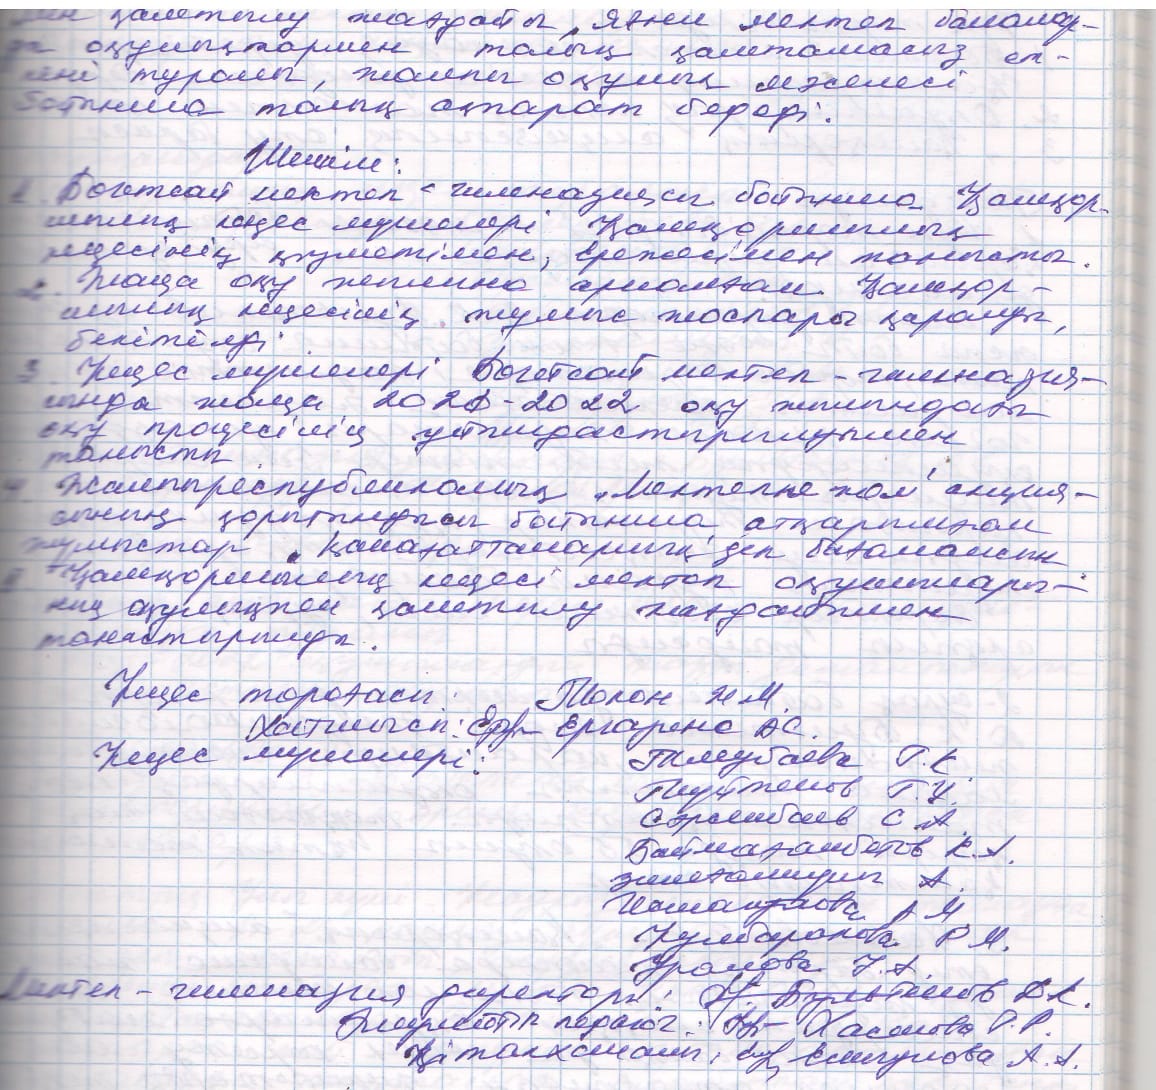 қамтылу жағдайы, яғни мектеп балалар-
оқулықтармен толық қамтамасыз ет-
туралы, жалпы оқулық мәселесі
бойынша толық ақпарат берді.
Шешім:
1. Бөгетсай мектеп-гимназиясы бойынша Қамқор-
шылық кеңес мүшелері Қамқоршылық
кеңесінің қызметімен, ережесімен танысты.
2. Жаңа оқу жылына арналған Қамқор-
шылық кеңесінің жұмыс жоспары қаралды,
бекітілді.
3. Кеңес мүшелері Бөгетсай мектеп-гимназия-
сында жаңа 2021-2022 оқу жылындағы
оқу процесінің ұйымдастырылуымен
танысты
4. Жалпыреспубликалық "Мектепке жол" акция-
сының қорытындысы бойынша атқарылған
жұмыстар қанағаттанарлық деп бағалансын
5. Қамқоршылық кеңесі мектеп оқушылары-
ның оқулықпен қамтылу жағдайымен
таныстырылды.
Кеңес төрағасы: Н М.
Хатшысы: А С.
Кеңес мүшелері: Тілеубаева Г. К
Г. У.
С. А.
Баймағамбетов К. А.
А.
А М
Құлбаракова Р М.
У. А.
Мектеп-гимназия директоры: Н. К.
педагог: Хасанова Г. Р.
Кітапханашы: А. А.